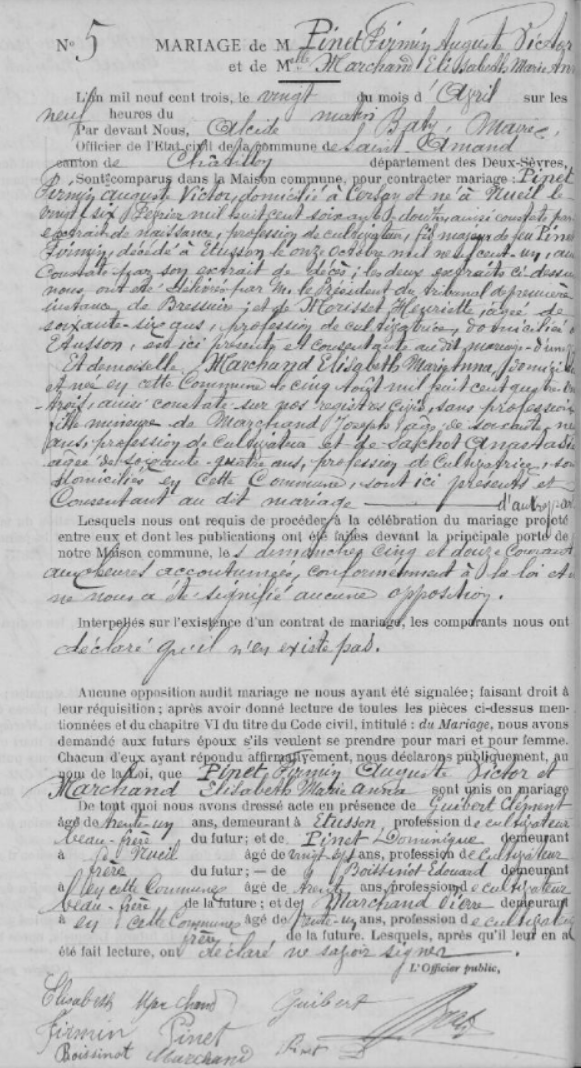 N° 5 MARIAGE de M Pinet Firmin Auguste Victor
et de Melle Marchand Elisabeth Marie Anna
L'an mil neuf cent trois, le vingt du mois d'Avril sur les
neuf heures du matin
Par devant Nous, Alcide Maire,
Officier de l'Etat-civil de la commune de Saint Amand
canton de Chatillon département des Deux-Sèvres,
Sont comparus dans la Maison commune, pour contracter mariage : Pinet
Firmin Auguste Victor, domicilié à et né à Nueil le
vingt six mil huit cent soixante ainsi constaté par
extrait de naissance, profession de cultivateur, fils majeur de feu Pinet
Firmin, décédé à Etusson le onze Octobre mil neuf cent un, ainsi
Constaté par son extrait de décès ; les deux extraits ci-dessus
nous ont été délivrés par M. le Président du tribunal de première
instance de Bressuire ; et de Morisset Henriette, âgée de
soixante-six ans, profession de cultivatrice, domiciliée à
Etusson, est ici présente et consentante au dit mariage - d'une
Et demoiselle, Marchand Elisabeth Marie Anna, domiciliée
et née en cette Commune le cinq Août mil huit cent quatre-vingt
-trois, ainsi constaté sur nos registres civils, sans profession
fille mineure de Marchand Joseph, âgé de soixante
ans, profession de cultivateur et de Sachot Anastasie
âgée de soixante-quatre ans, profession de cultivatrice,
domiciliés en cette Commune, sont ici présents et
Consentant au dit mariage d'autre part
Lesquels nous ont requis de procéder à la célébration du mariage projeté
entre eux et dont les publications ont été faites devant la principale porte de
notre Maison commune, les dimanches Cinq et douze Courant
aux heures accoutumées, conformément à la loi et
ne nous a été signifié aucune opposition.
Interpellés sur l'existence d'un contrat de mariage, les comparants nous ont
déclaré qu'il n'en existe pas.
Aucune opposition audit mariage ne nous ayant été signalée ; faisant droit à
leur réquisition ; après avoir donné lecture de toutes les pièces ci-dessus men-
tionnées et du chapitre VI du titre du Code civil, intitulé : du Mariage, nous avons
demandé aux futurs époux s'ils veulent se prendre pour mari et pour femme.
Chacun d'eux ayant répondu affirmativement, nous déclarons publiquement, au
nom de la Loi, que Pinet Firmin Auguste Victor et
Marchand Elisabeth Marie Anna sont unis en mariage
De tout quoi nous avons dressé acte en présence de Guibert Clément
âgé de trente-un ans, demeurant à Etusson, profession de cultivateur
beau-frère du futur ; et de Pinet Dominique demeurant
à Nueil âgé de vingt ans, profession de Cultivateur
frère du futur ; — de Boissinot Edouard demeurant
à en cette Commune âgé de trente ans, profession de cultivateur
beau-frère de la future ; et de Marchand Pierre demeurant
à en cette Commune âgé de trente-un ans, profession de cultivateur
frère de la future. Lesquels, après qu'il leur en a
été fait lecture, ont déclaré ne savoir signer
L'Officier public,
Elisabeth Marchand Guibert
Firmin Pinet
Boissinot Marchand Pinet D